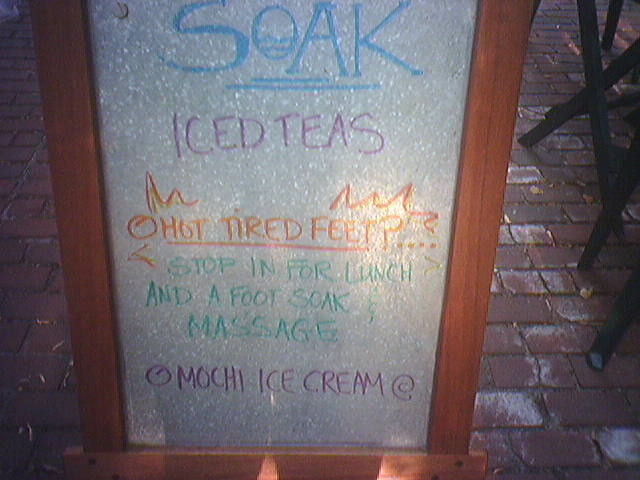 SOAK
ICED TEAS
HOT TIRED FEET?....
STOP IN FOR LUNCH
AND A FOOT SOAK &
MASSAGE
MOCHI ICE CREAM